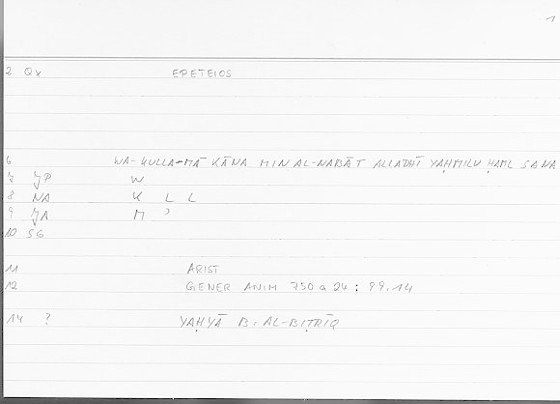 1
2 Qx EPETEIOS
6 WA-KULLA-MĀ KĀNA MIN AL-NABĀT ALLADHĪ YAḤMILU ḤAML SANA
7 JP W
8 NA K L L
9 JA M ʾ
10 SG
11 ARIST
12 GENER ANIM 750 a 24 : 99.14
14 ? YAḤYĀ B. AL-BIṬRĪQ